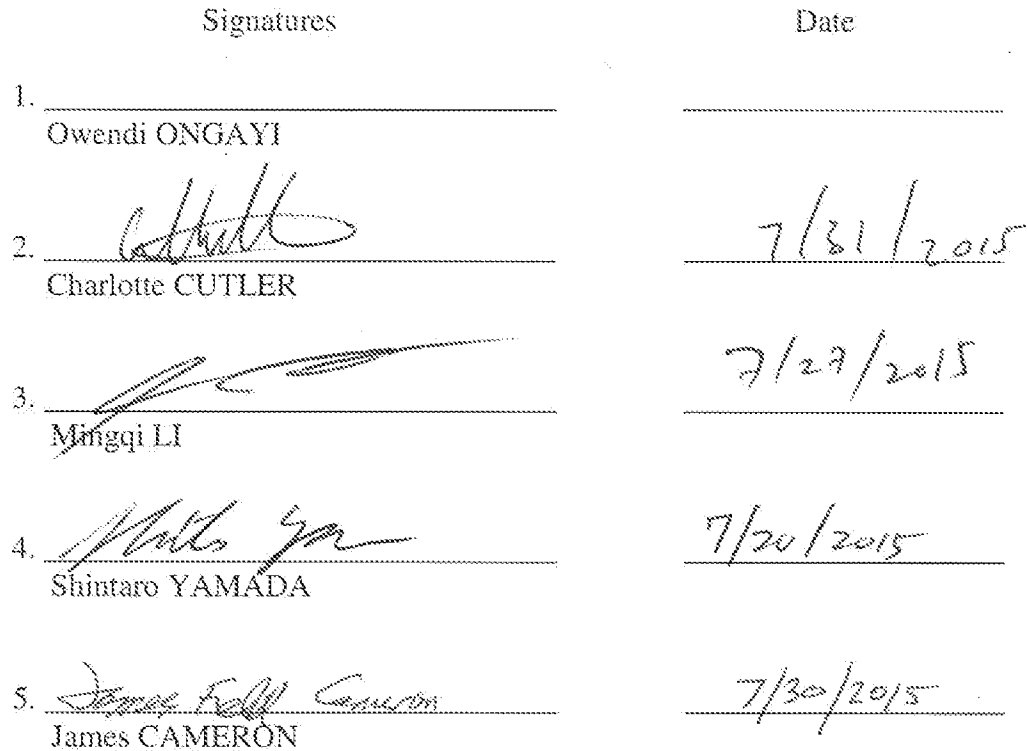 Signatures Date
1.
Owendi ONGAYI
2. 7/31/2015
Charlotte CUTLER
3. 7/27/2015
Mingqi LI
4. 7/20/2015
Shintaro YAMADA
5. James Cameron 7/30/2015
James CAMERON